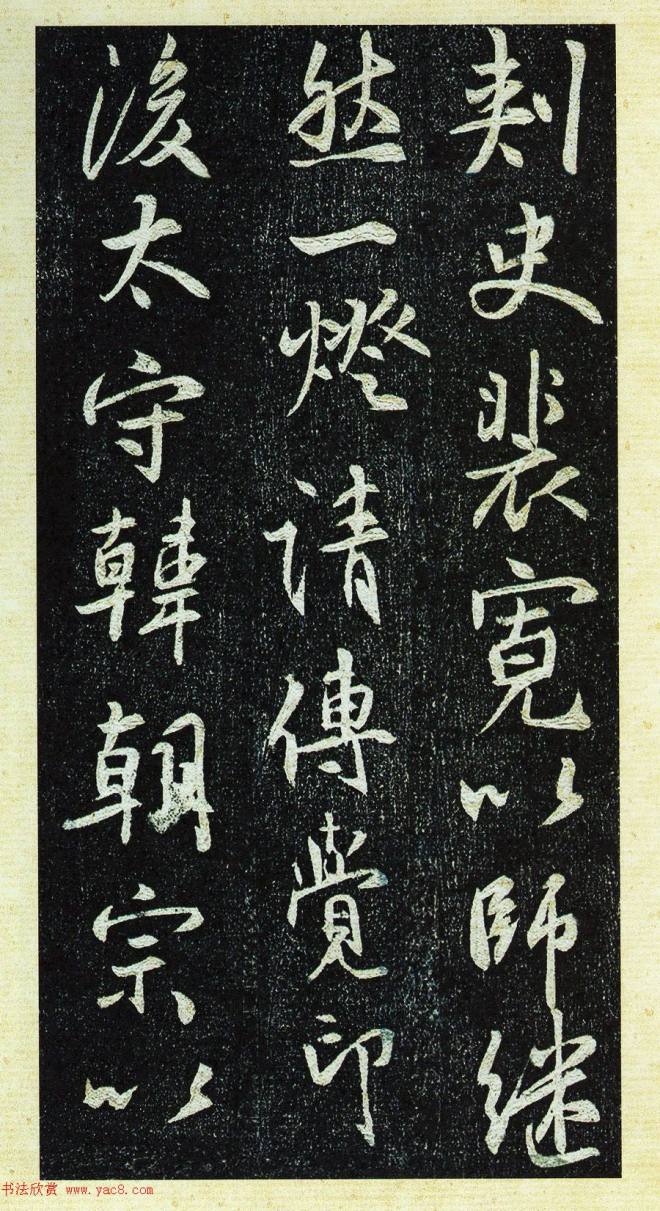 刺史裴寛以師继
然一燈请傳覺印
後太守韓朝宗以
书法欣赏 www.yac8.com